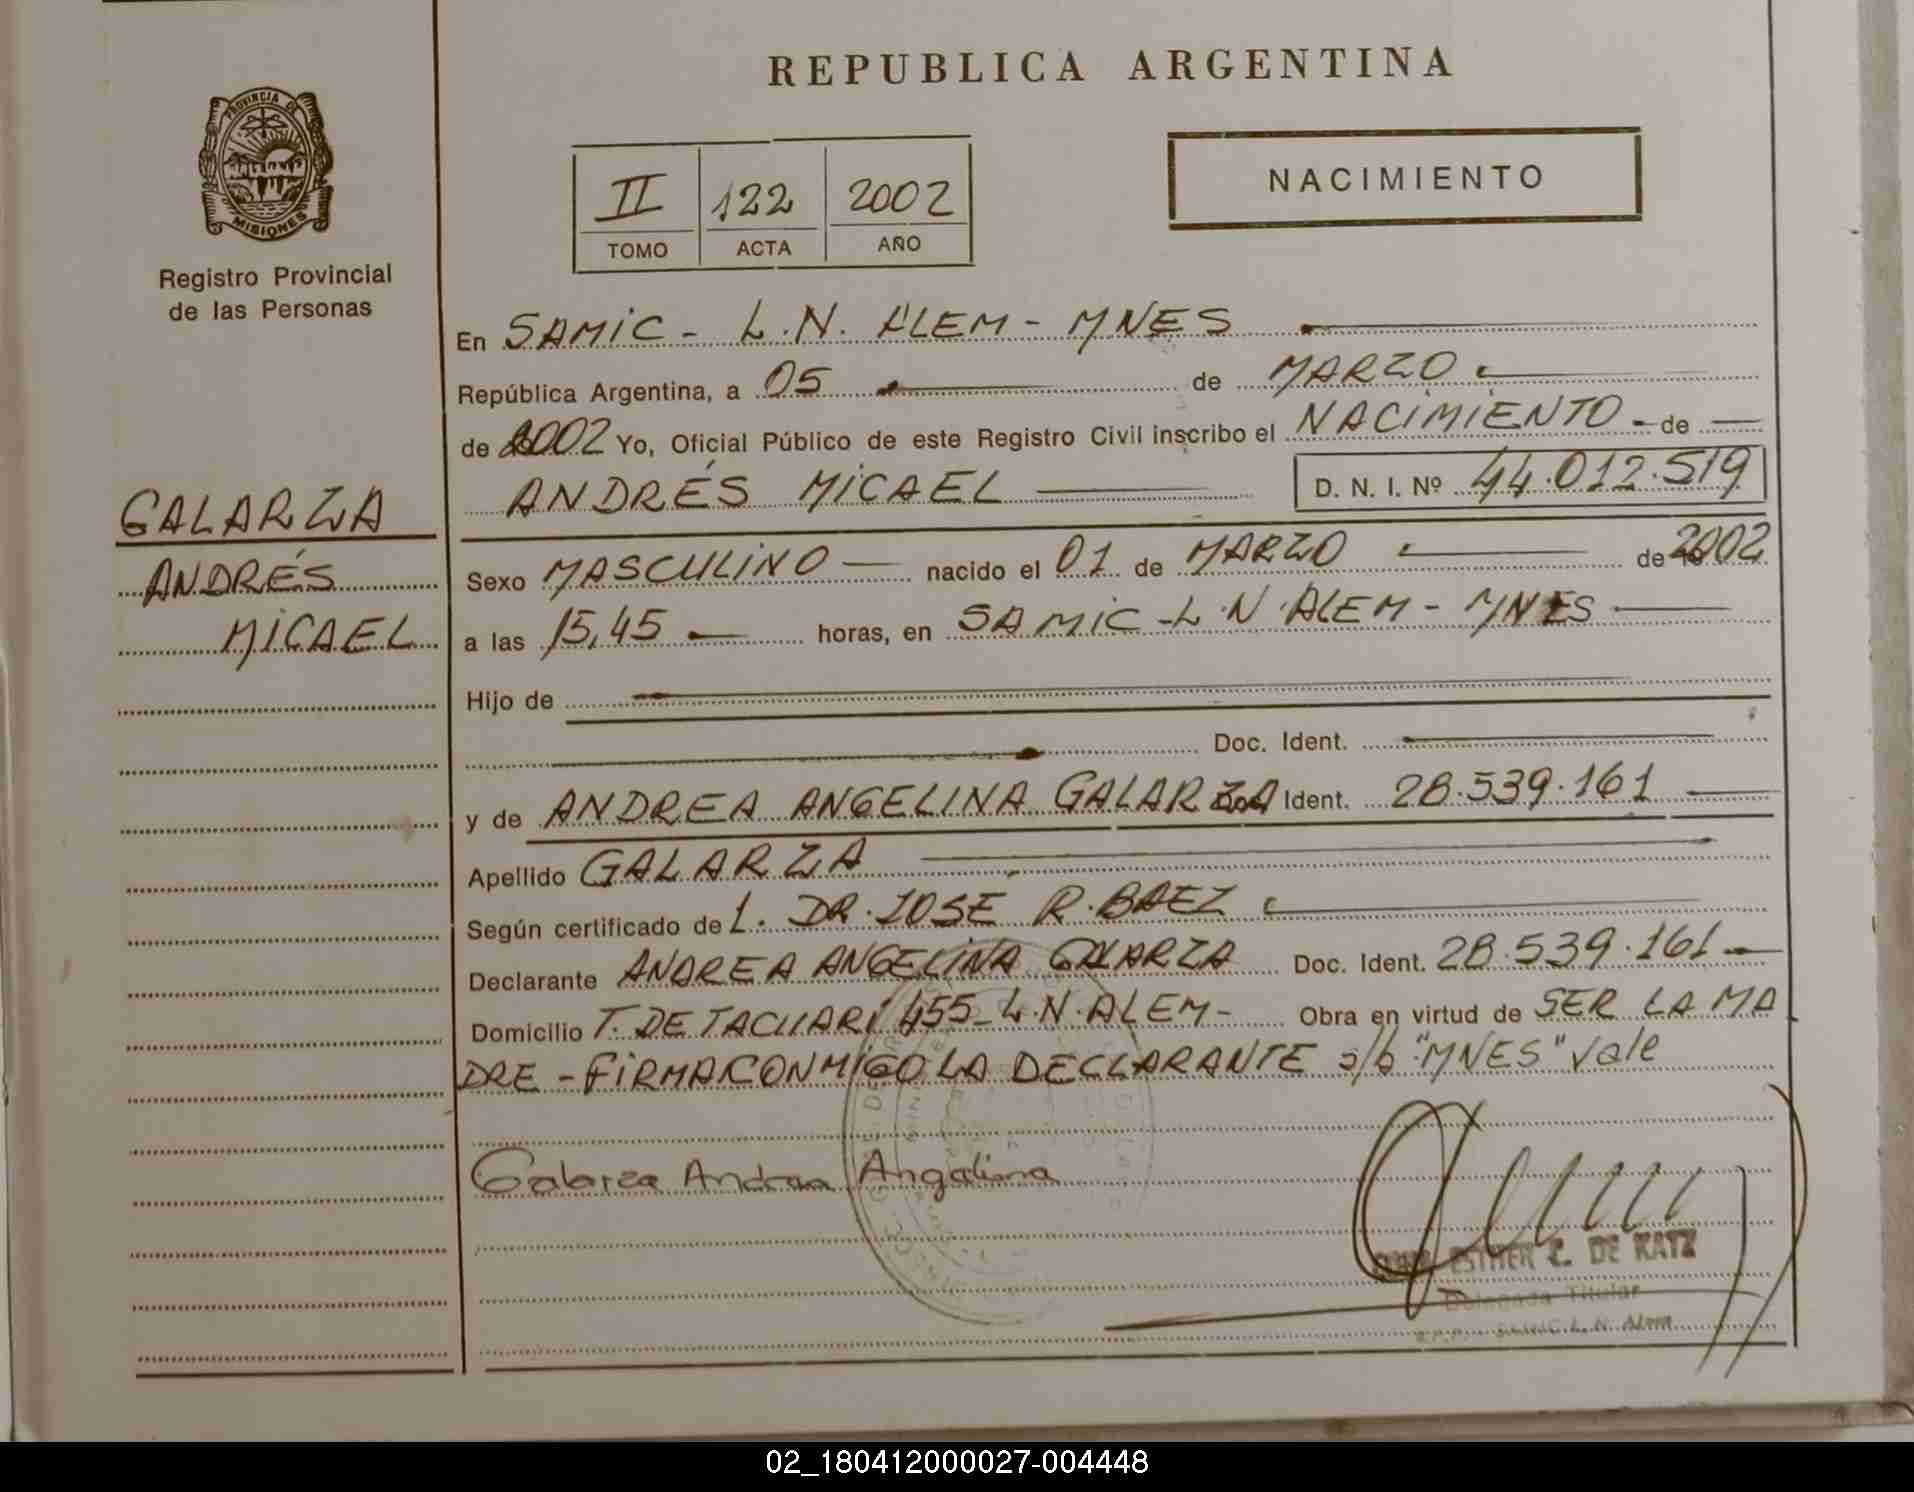 REPUBLICA ARGENTINA
PROVINCIA DE
MISIONES
Registro Provincial
de las Personas
II 122 2002
TOMO ACTA AÑO
NACIMIENTO
GALARZA
ANDRÉS
MICAEL
En SAMIC - L.N. ALEM - MNES
República Argentina, a 05 de MARZO
de 2002 Yo, Oficial Público de este Registro Civil inscribo el NACIMIENTO - de
ANDRÉS MICAEL D. N. I. Nº 44.012.519
Sexo MASCULINO nacido el 01 de MARZO de 2002
a las 15,45 horas, en SAMIC - L.N. ALEM - MNES
Hijo de
Doc. Ident.
y de ANDREA ANGELINA GALARZA Doc. Ident. 28.539.161
Apellido GALARZA
Según certificado de L. DR. JOSÉ R. BAEZ
Declarante ANDREA ANGELINA GALARZA Doc. Ident. 28.539.161
Domicilio T. DE TACUARÍ 455 - L.N. ALEM - Obra en virtud de SER LA MA
DRE - FIRMA CONMIGO LA DECLARANTE s/b "MNES" Vale
Galarza Andrea Angelina
ESTHER Z. DE KATZ
Delegada Titular
R.P.P. - SAMIC L. N. Alem
02_180412000027-004448